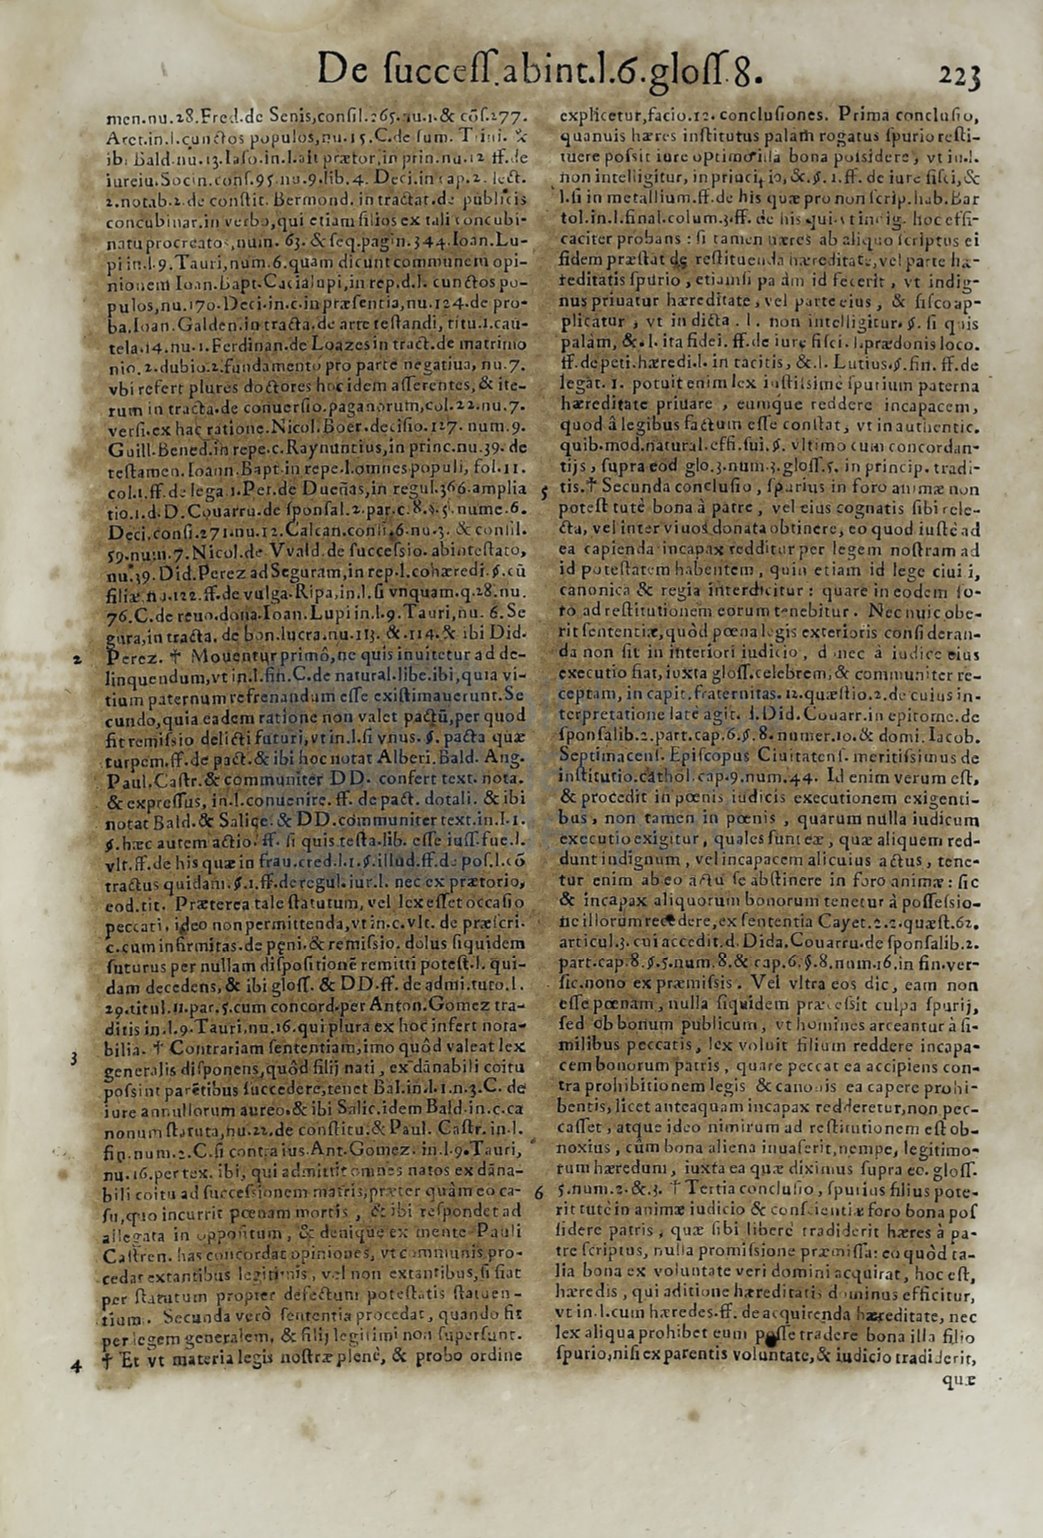 De ſucceſſ.abint.l.6.gloſſ.8. 223
men.nu.28.Fred.de Senis,conſil.265.nu.1.& cõſ.277.
Aret.in.l.cunctos populos,nu.15.C.de ſum. Trini. &
ibi Bald.nu.13.Iaſo.in.l.ait prætor,in prin.nu.12 ff.de
iureiu.Socin.conſ.95.nu.9.lib.4. Deci.in cap.2. lect.
2.notab.2.de conſtit. Bermond. in tractat.de publicis
concubinar.in verbo,qui etiam filios ex tali concubi-
natu procreatos,num. 63. & ſeq.pagin.344.Ioan.Lu-
pi in.l.9.Tauri,num.6.quam dicunt communem opi-
nionem Ioan.Bapt.Cacialupi,in rep.d.l. cunctos po-
pulos,nu.170.Deci.in.c.in præſentia,nu.124.de pro-
ba.Ioan.Galden.in tracta.de arte teſtandi, titu.1.cau-
tela.14.nu.1.Ferdinan.de Loazes in tract.de matrimo
nio.2.dubio.2.fundamento pro parte negatiua, nu.7.
vbi refert plures doctores hoc idem aſſerentes,& ite-
rum in tracta.de conuerſio.paganorum,col.22.nu.7.
verſi.ex hac ratione.Nicol.Boer.deciſio.127. num.9.
Guill.Bened.in repe.c.Raynuntius,in princ.nu.39. de
teſtamen.Ioann.Bapt.in repe.l.omnes populi, fol.11.
col.1.ff.de lega.1.Per.de Dueñas,in regul.366.amplia
tio.1.d.D.Couarru.de ſponſal.2.par.c.8.§.5.nume.6.
Deci.conſi.271.nu.12.Calcan.conſi.6.nu.3. & conſil.
59.num.7.Nicol.de Vvald.de ſucceſsio.abinteſtato,
nu.39.Did.Perez ad Seguram,in rep.l.cohæredi.§.cũ
filiæ.nu.122.ff.de vulga.Ripa,in.l.ſi vnquam.q.28.nu.
76.C.de reuo.dona.Ioan.Lupi in.l.9.Tauri,nu. 6.Se
gura,in tracta. de bon.lucra.nu.113. &.114.& ibi Did.
2 Perez. † Mouentur primò,ne quis inuitetur ad de-
linquendum,vt in.l.fin.C.de natural.libe.ibi,quia vi-
tium paternum refrenandum eſſe exiſtimauerunt.Se
cundo,quia eadem ratione non valet pactũ,per quod
fit remiſsio delicti futuri,vt in.l.ſi vnus.§. pacta quæ
turpem.ff.de pact.& ibi hoc notat Alberi. Bald. Ang.
Paul.Caſtr.& communiter DD. confert text. nota.
& expreſſus, in.l.conuenire. ff. de pact. dotali. & ibi
notat Bald.& Salice.& DD.communiter text.in.l.1.
§.hæc autem actio. ff. ſi quis teſta.lib. eſſe iuſſ.fue.l.
vlt.ff.de his quæ in frau.cred.l.1.§.illud.ff.de poſ.l.cõ
tractus quidam.§.1.ff.de regul.iur.l. nec ex prætorio,
eod.tit. Præterea tale ſtatutum, vel lex eſſet occaſio
peccati, ideo non permittenda,vt in.c.vlt. de præſcri.
c.cum infirmitas.de pęni.& remiſsio. dolus ſiquidem
futurus per nullam diſpoſitionẽ remitti poteſt.l. qui-
dam decedens,& ibi gloſſ. & DD.ff. de admi.tuto.l.
29.titul.11.par.5.cum concord.per Anton.Gomez tra-
ditis in.l.9.Tauri,nu.16.qui plura ex hoc infert nota-
3 bilia. † Contrariam ſententiam,imo quòd valeat lex
generalis diſponens,quòd filij nati , ex dānabili coitu
poſsint parẽtibus ſuccedere,tenet Bal.in.l.1.n.3.C. de
iure annullorum aureo.& ibi Salic.idem Bald.in.c.ca
nonum ſtatuta,nu.22.de conſtitu.& Paul. Caſtr.in.l.
fin.num.2.C.ſi contra ius.Ant.Gomez. in.l.9.Tauri,
nu.16.per tex. ibi, qui admittit omnes natos ex dāna-
bili coitu ad ſucceſsionem matris,præter quàm eo ca-
ſu,quo incurrit pœnam mortis , & ibi reſpondet ad
allegata in oppoſitum , & denique ex mente Pauli
Caſtren. has concordat opiniones, vt communis.pro-
cedat extantibus legitimis, vel non extantibus,ſi fiat
per ſtatutum propter defectum poteſtatis ſtatuen-
tium. Secunda verò ſententia procedat, quando fit
per legem generalem, & filij legitimi non ſuperſunt.
4 † Et vt materia legis noſtræ plenè, & probo ordine
explicetur,facio.12.concluſiones. Prima concluſio,
quanuis hæres inſtitutus palam rogatus ſpurio reſti-
tuere poſsit iure optimo illa bona poſsidere, vt in.l.
non intelligitur, in principio,&.§.1.ff. de iure fiſci,&
l.ſi in metallium.ff.de his quæ pro non ſcrip.hab.Bar
tol.in.l.final.colum.3.ff. de his qui vt indig. hoc effi-
caciter probans : ſi tamen hæres ab aliquo ſcriptus ei
fidem præſtat de reſtituenda hæreditate,vel parte hæ-
reditatis ſpurio , etiamſi palàm id fecerit , vt indig-
nus priuatur hæreditate , vel parte eius , & fiſco ap-
plicatur , vt in dicta . l . non intelligitur. §. ſi quis
palàm, &.l. ita fidei. ff. de iure fiſci. l.prædonis loco.
ff.de peti.hæredi.l. in tacitis, &.l. Lutius.§.fin. ff.de
legat. 1. potuit enim lex iuſtiſsimè ſpurium paterna
hæreditate priuare , eumque reddere incapacem,
quod à legibus factum eſſe conſtat, vt in authentic.
quib.mod.natural.effi.ſui.§. vltimo cum concordan-
tijs , ſupra eod glo.3.num.3.gloſſ.5. in princip. tradi-
5 tis.† Secunda concluſio , ſpurius in foro animæ non
poteſt tutè bona à patre , vel eius cognatis ſibi rele-
cta, vel inter viuos donata obtinere, eo quod iuſtè ad
ea capienda incapax redditur per legem noſtram ad
id poteſtatem habentem , quin etiam id lege ciui i,
canonica & regia interdicitur : quare in eodem fo-
ro ad reſtitutionem eorum tenebitur . Nec huic obe-
rit ſententiæ,quòd pœna legis exterioris conſideran-
da non ſit in interiori iudicio , donec à iudice eius
executio fiat, iuxta gloſſ.celebrem,& communiter re-
ceptam, in capit.fraternitas.12.quæſtio.2.de cuius in-
terpretatione latè agit. d.Did.Couarr.in epitome.de
ſponſalib.2.part.cap.6.§.8.numer.10.& domi. Iacob.
Septimacenſ. Epiſcopus Ciuitatenſ. meritiſsimus de
inſtitutio.cathol.cap.9.num.44. Id enim verum eſt,
& procedit in pœnis iudicis executionem exigenti-
bus , non tamen in pœnis , quarum nulla iudicum
executio exigitur, quales ſunt eæ , quæ aliquem red-
dunt indignum , vel incapacem alicuius actus, tene-
tur enim ab eo actu ſe abſtinere in foro animæ : ſic
& incapax aliquorum bonorum tenetur à poſſeſsio-
ne illorum recedere,ex ſententia Cayet.2.2.quæſt.62.
articul.3. cui accedit.d.Dida.Couarru.de ſponſalib.2.
part.cap.8.§.5.num.8.& cap.6.§.8.num.16.in fin.ver-
ſic.nono ex præmiſsis . Vel vltra eos dic, eam non
eſſe pœnam, nulla ſiquidem præceſsit culpa ſpurij,
ſed ob bonum publicum, vt homines arceantur à ſi-
milibus peccatis, lex voluit filium reddere incapa-
cem bonorum patris , quare peccat ea accipiens con-
tra prohibitionem legis & canonis ea capere prohi-
bentis, licet anteaquam incapax redderetur,non pec-
caſſet , atque ideo nimirum ad reſtitutionem eſt ob-
noxius , cùm bona aliena inuaſerit,nempe, legitimo-
rum hæredum , iuxta ea quæ diximus ſupra eo. gloſſ.
6 5.num.2.&.3. † Tertia concluſio , ſpurius filius pote-
rit tutè in animæ iudicio & conſcientiæ foro bona poſ
ſidere patris , quæ ſibi liberè tradiderit hæres à pa-
tre ſcriptus, nulla promiſsione præmiſſa: eo quòd ta-
lia bona ex voluntate veri domini acquirat, hoc eſt,
hæredis , qui aditione hæreditatis dominus efficitur,
vt in.l.cum hæredes.ff. de acquirenda hæreditate, nec
lex aliqua prohibet eum poſſe tradere bona illa filio
ſpurio,niſi ex parentis voluntate,& iudicio tradiderit,
quæ